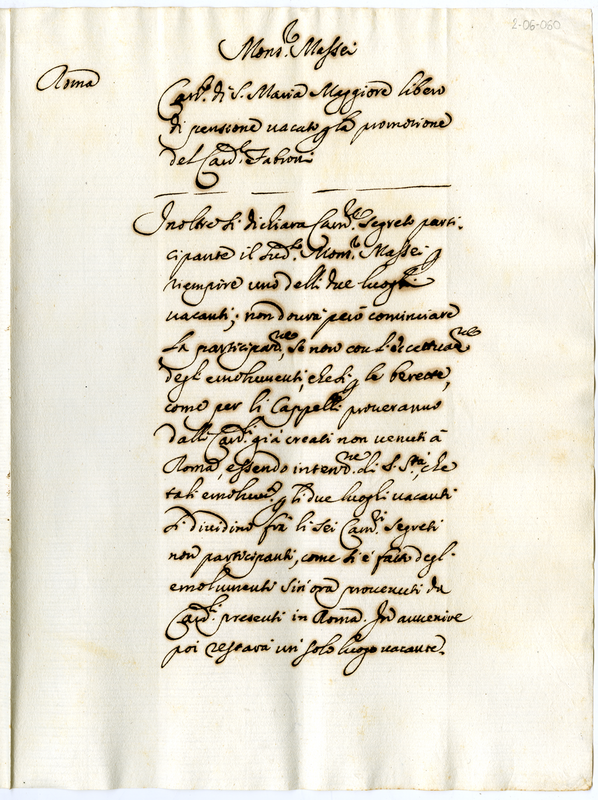 2-06-060
Mons.r Massei
Roma
Can.to di S. Maria Maggiore libero
di pensione vacato p la promozione
del Card.l Fabroni
Inoltre si dichiara Cam.re segreto parti-
cipante il sud.o Mons.r Massei p
riempire uno delli due luoghi
vacanti; non dovrà però cominciare
la participaz.ne, se non con l'eccettuaz.ne
degl'emolumenti, che si p le berette,
come per li Cappelli proveranno
dalli Card.li già creati non venuti à
Roma, essendo intenz.ne di S. S.tà, che
tali emolum.ti p li due luoghi vacanti
si dividino frà li sei Cam.ri Segreti
non participanti, come si è fatto degl'
emolumenti sin'ora provenuti da
Card.li presenti in Roma. In avvenire
poi resterà un solo luogo vacante.